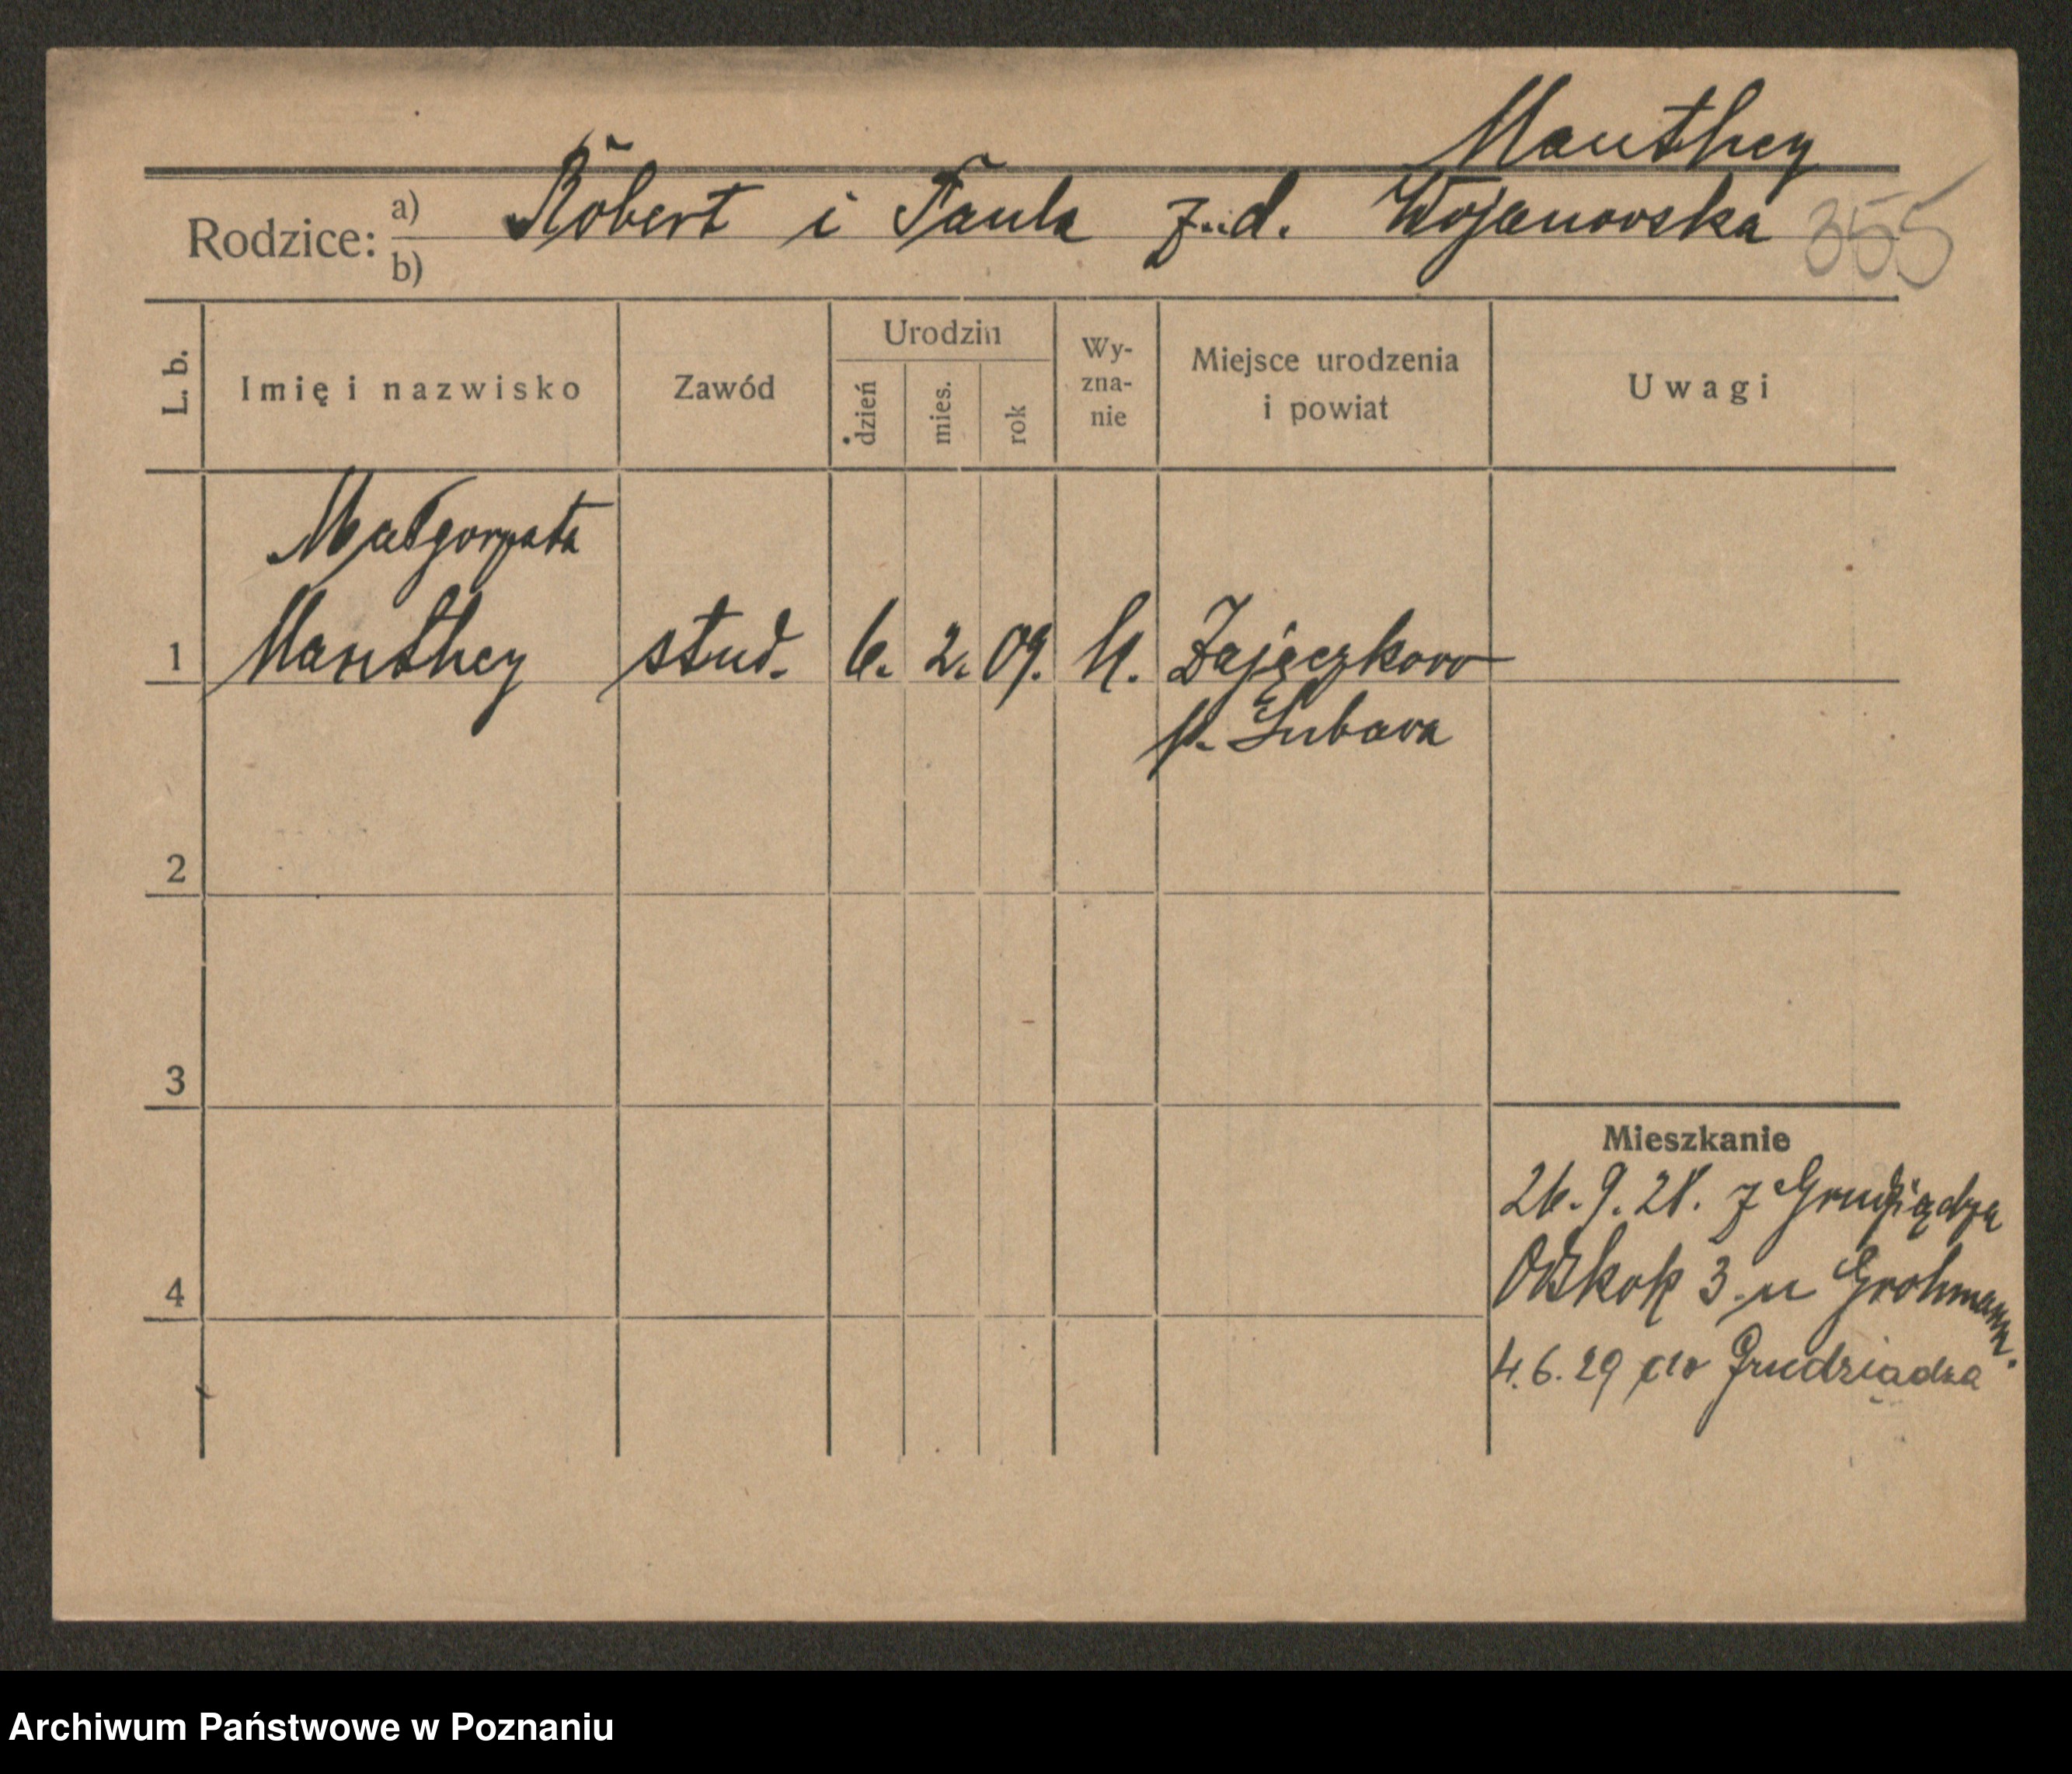 Manthey
Rodzice: a) b) Robert i Paula z. d. Wojanowska 355
L. b. Imię i nazwisko Zawód Urodzin dzień mies. rok Wy-zna-nie Miejsce urodzenia i powiat Uwagi
Małgorzata
1 Manthey stud. 6. 2. 09. Zajączkowo
p. Lubawa
2
3
Mieszkanie
26.9.28. z Grudziądza
4 3. u Grohmann.
4.6.29 do Grudziądza
Archiwum Państwowe w Poznaniu